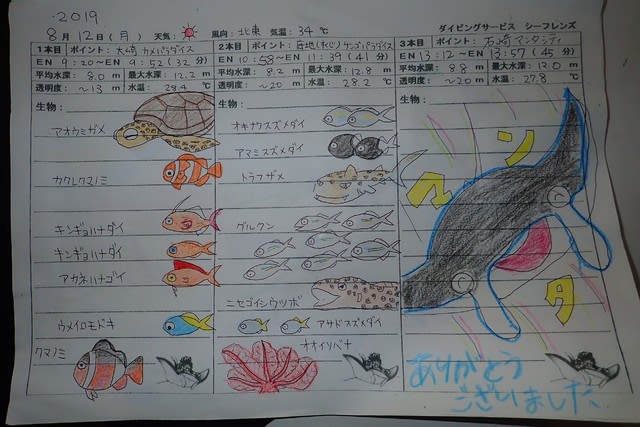 2019
8月12日(月) 天気: 風向: 北東 気温: 34℃
ダイビングサービス シーフレンズ
1本目 ポイント: 大崎 カメパラダイス
EN 9:20~EN 9:52(32分)
平均水深: 8.0 m 最大水深: 12.2 m
透明度: ~13 m 水温: 28.4 ℃
生物:
アオウミガメ
カクレクマノミ
キンギョハナダイ
キンギョハナダイ
アカネハナゴイ
ウメイロモドキ
クマノミ
2本目 ポイント: サンゴパラダイス
EN 10:58~EN 11:39(41分)
平均水深: 8.2 m 最大水深: 12.8 m
透明度: ~20 m 水温: 28.2 ℃
生物:
オキナワスズメダイ
アマミスズメダイ
トラフザメ
グルクン
ニセゴイシウツボ
アサドスズメダイ
オオイソバナ
3本目 ポイント: 石崎 マンタシティ
EN 13:12~EN 13:57(45分)
平均水深: 8.8 m 最大水深: 12.0 m
透明度: ~20 m 水温: 27.8 ℃
生物:
マンタ
ありがとう
ございました